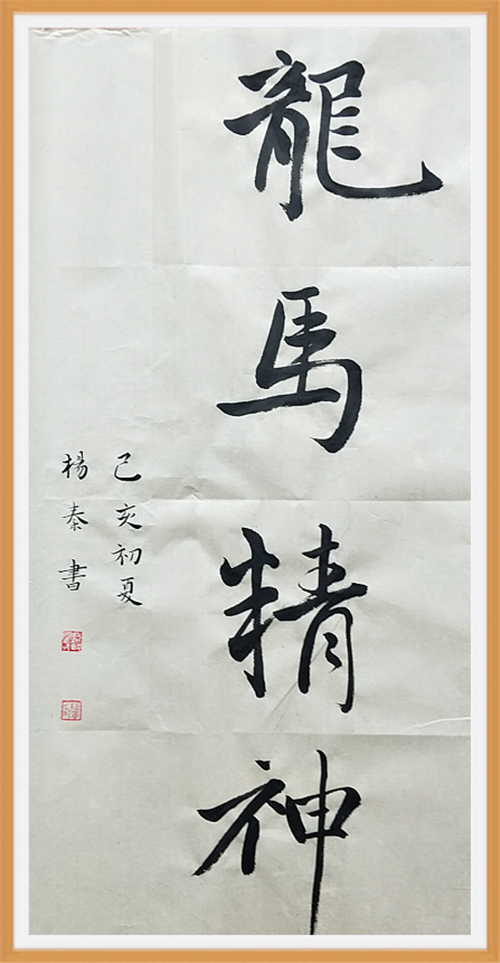 龍馬精神
己亥初夏
楊秦書